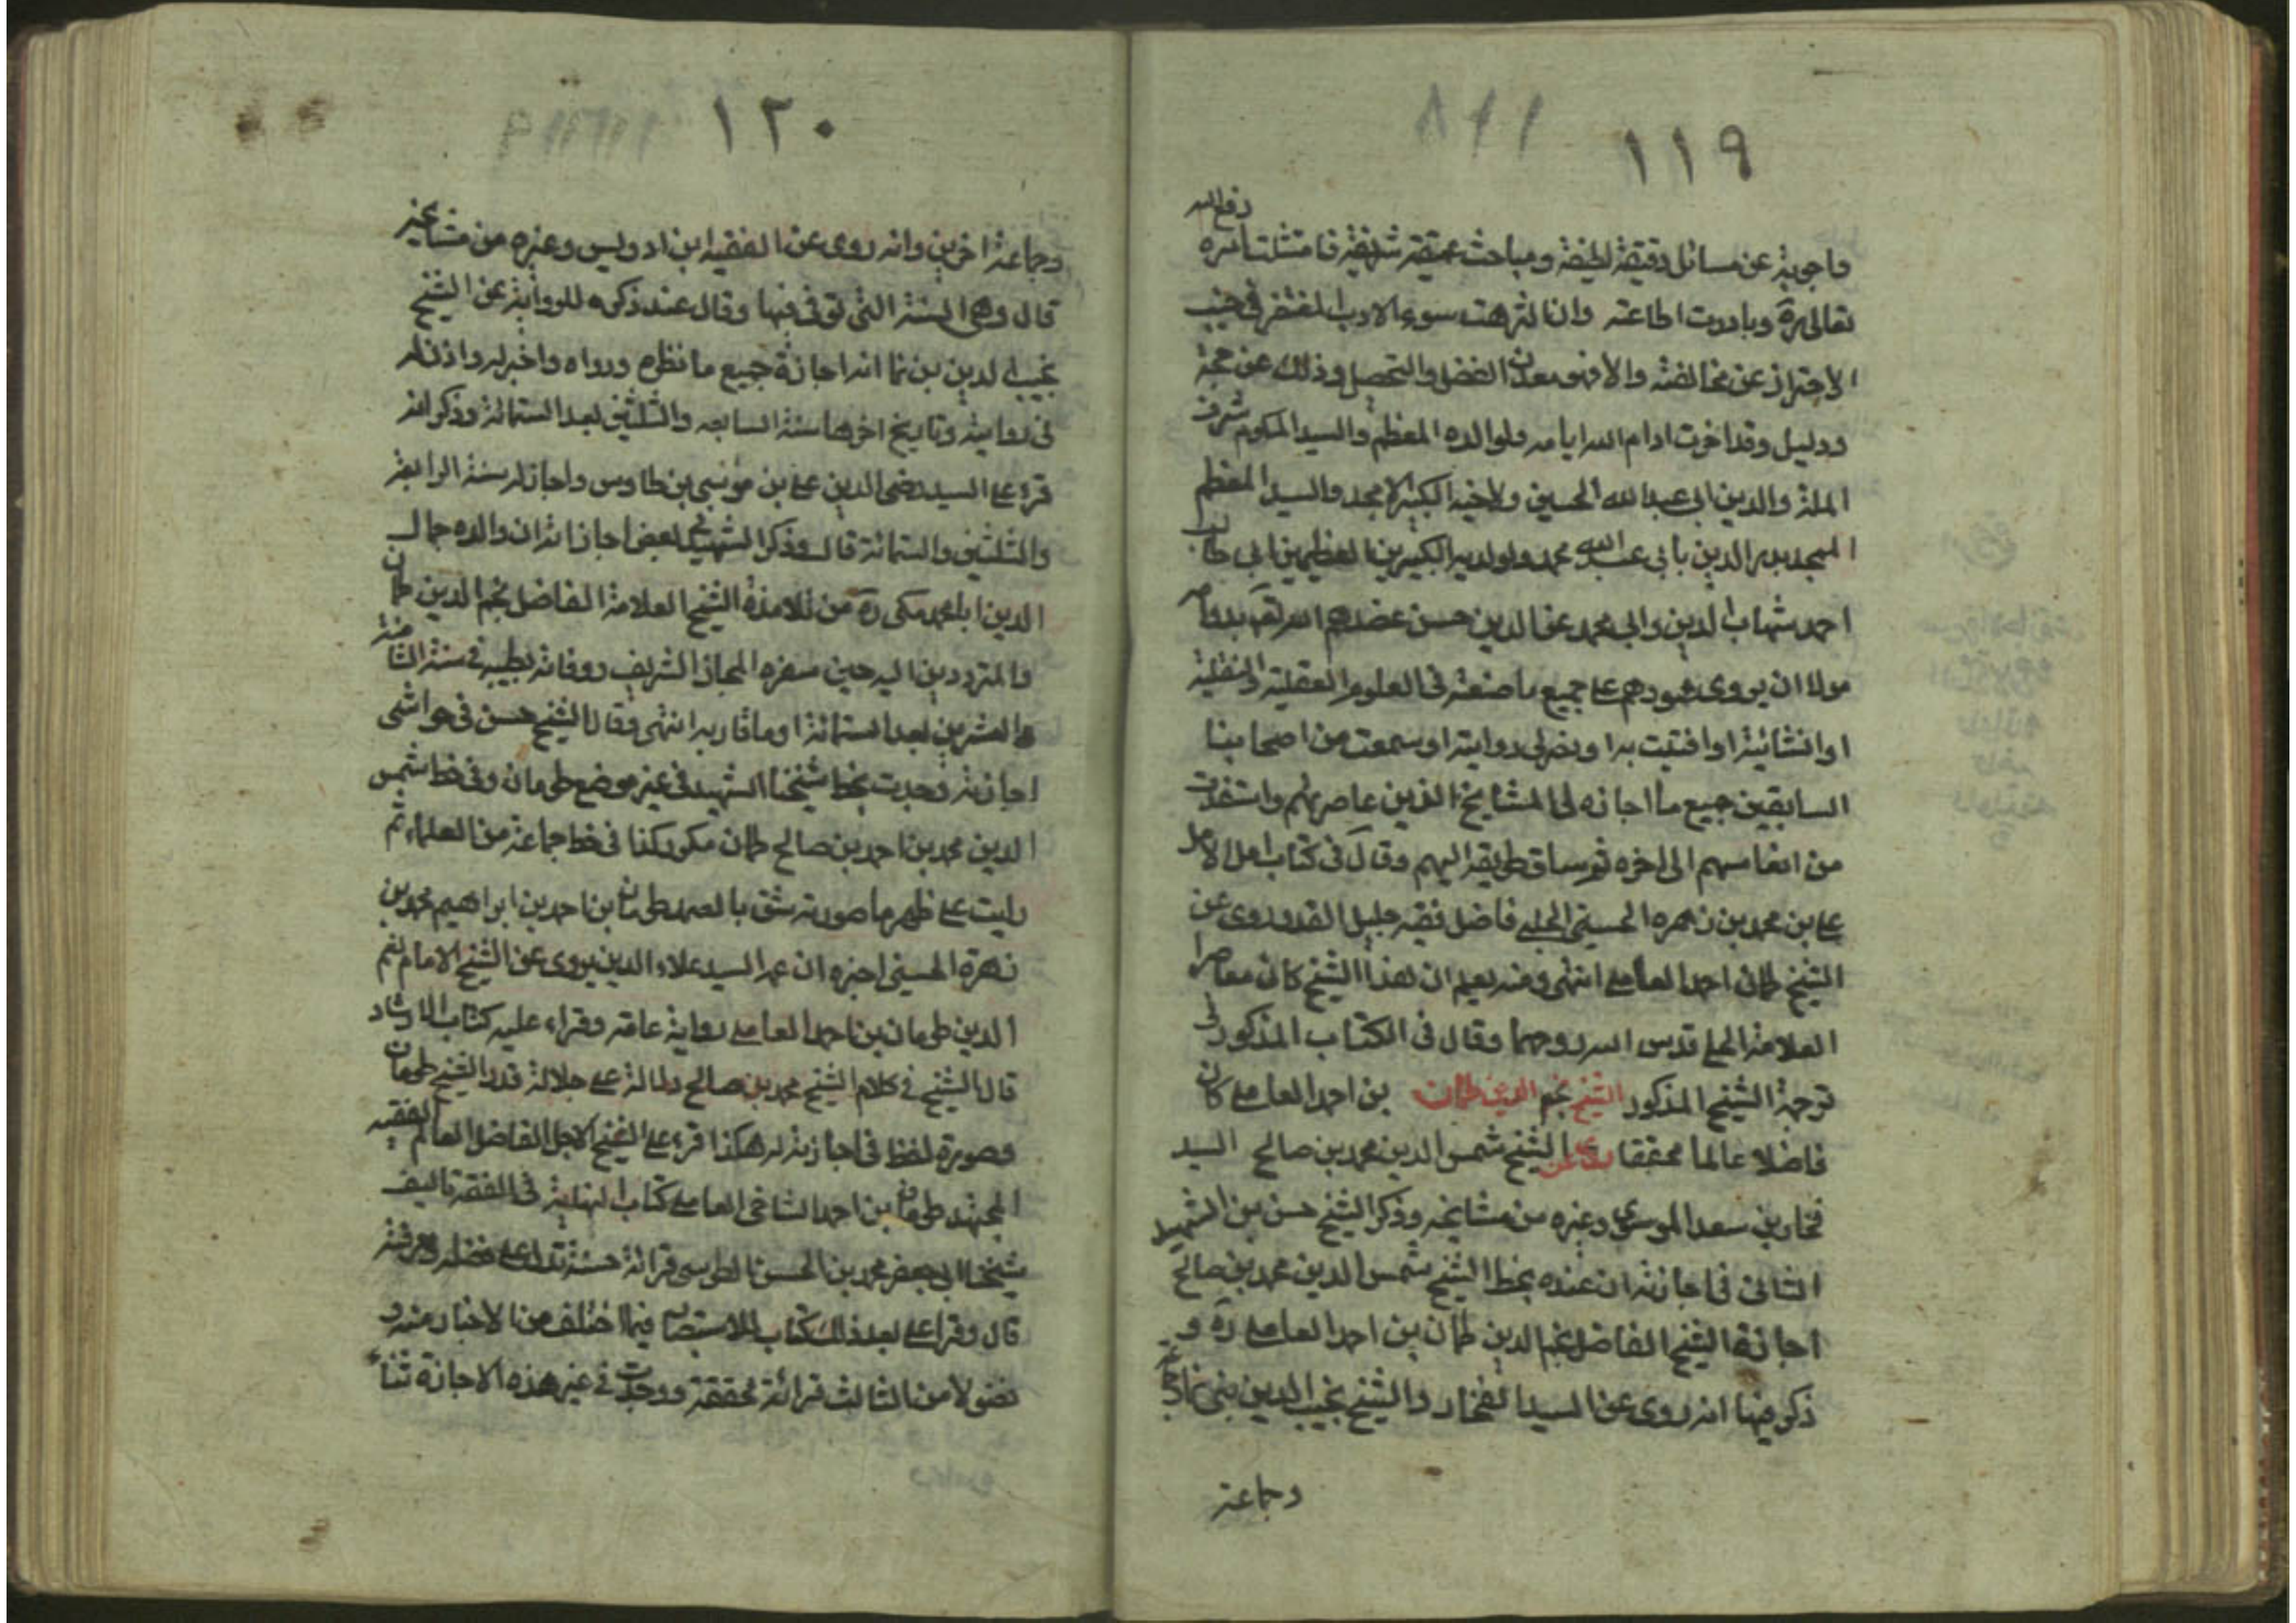 ١١٩
واجوبة عن مسائل دقيقة لطيفة ومباحث عميقة شريفة فامتثلت امره رفع الله
تعالى قدره وبادرت اطاعته وان التزمت سوء الادب المغتفر في جنب
الاحتراز عن مخالفته والا فهو معدن الفضل والتحصيل وذلك غني عن حجة
ودليل وقد اخرت ادام الله ايامه ولوالده المعظم والسيد المكرم شرف
الملة والدين ابي عبد الله الحسين ولاخيه الكبير الامجد والسيد المعظم
الممجد بدر الدين بابي عبد الله محمد ولولديه الكبيرين المعظمين ابي طالب
احمد شهاب الدين وابي محمد عز الدين حسن عضدهم الله تعالى بدوام
مولانا ان يروي هو وهم على جميع ما صنفته في العلوم العقلية والنقلية
او انشائية او افتيت به او ونصر لي روايته او سمعت من اصحابنا
السابقين جميع ما اجازه لي المشايخ الذين عاصرتهم واستفدت
من انفاسهم الى اخره ثم ساق طريقه اليهم وقال في كتاب امل الامل
علي بن محمد بن زهره الحسيني الحلبي فاضل فقيه جليل القدر روى عن
الشيخ طمان احمد العاملي انتهى ومنه يعلم ان هذا الشيخ كان معاصرا
العلامة الحلي قدس الله روحهما وقال في الكتاب المذكور في
ترجمة الشيخ المذكور الشيخ نجم الدين طمان بن احمد العاملي كان
فاضلا عالما محققا روى عن الشيخ شمس الدين محمد بن صالح السيد
فخار بن سعد الموسوي وغيره من مشايخه وذكر الشيخ حسن بن الشهيد
الثاني في اجازته ان عنده بخط الشيخ شمس الدين محمد بن صالح
اجازة الشيخ الفاضل نجم الدين طمان بن احمد العاملي ره و
ذكر فيها انه روى عن السيد الفخار والشيخ نجيب الدين بني نما
وجماعة
١٢٠
وجماعة اخرين وانه روى عن الفقيه ابن ادريس وغيره من مشايخه
قال وهي السنة التي توفي فيها وقال عند ذكره للرواية عن الشيخ
نجيب الدين بن نما انه اجازة جميع ما نظره ورواه واخبر له واذن له
في روايته وتاريخ اخرها سنة السابعه والثلثين بعد الستمائة وذكر انه
قرء على السيد رضي الدين علي بن موسى بن طاوس واجاز له سنة الرابعة
والثلثين والستمائة قال وذكر الشهيد في بعض اجازاته ان والده جمال
الدين ابا محمد مكي ره من تلامذة الشيخ العلامة الفاضل نجم الدين طمان
والمترددين اليه حين سفره الحجاز الشريف ووفاته بطيبه في سنة الثامنة
والعشرين بعد الستمائة او ما قاربه انتهى وقال الشيخ حسن في حواشي
اجازته وجدت بخط شيخنا الشهيد في غير موضع طومان وفي خط شمس
الدين محمد بن احمد بن صالح طمان مكرر كذا في خط جماعة من العلماء ثم
رايت على ظهر ما صورته طومان بن احمد بن ابراهيم محمد بن
زهرة الحسيني اخبره ان عمه السيد علاء الدين يروي عن الشيخ الامام نجم
الدين طومان بن احمد العاملي رواية عامة وقراء عليه كتاب الارشاد
قال الشيخ في كلام الشيخ محمد بن صالح دلالة على جلالة قدر الشيخ طومان
وصورة لفظه في اجازته له هكذا قرء علي الشيخ الاجل الفاضل العالم الفقيه
المجتهد طومان بن احمد الشامي العاملي كتاب النهاية في الفقه تاليف
شيخنا ابي جعفر محمد بن الحسن الطوسي قرائة حسنة تدل على فضله ومعرفته
قال وقراء علي بعد ذلك كتاب الاستبصار فيما اختلف من الاخبار منه و
فصولا من الثالث قرائة محققة ووجدت في غير هذه الاجازة ثناء